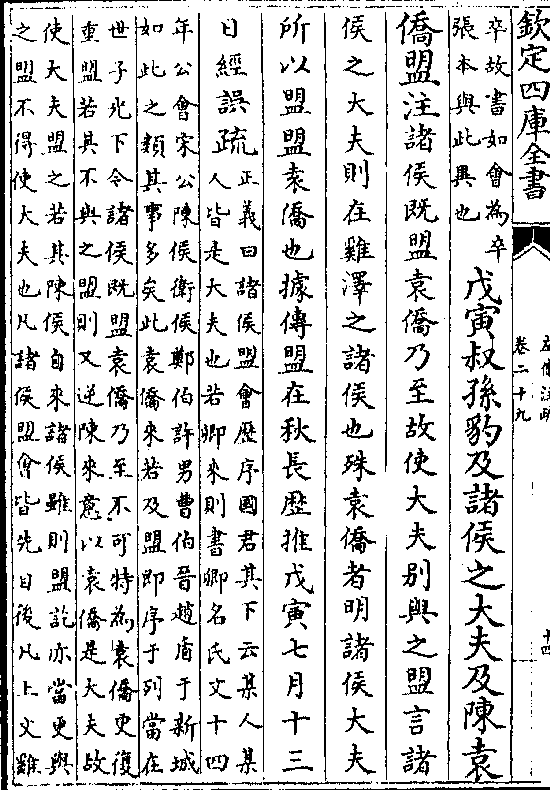 欽定四庫全書
卷二十九
十四
卒故書如會為卒
張本與此異也
戊寅叔孫豹及諸侯之大夫及陳袁
僑盟注諸侯既盟袁僑乃至故使大夫别與之盟言諸
侯之大夫則在雞澤之諸侯也殊袁僑者明諸侯大夫
所以盟盟袁僑也據傳盟在秋長歴推戊寅七月十三
日經誤疏
正義曰諸侯盟會歴序國君其下云某人某
人皆是大夫也若卿來則書卿名氏文十四
年公會宋公陳侯衛侯鄭伯許男曹伯晉趙盾于新城
如此之類其事多矣此袁僑來若及盟即序于列當在
世子光下今諸侯既盟袁僑乃至不可特為袁僑更復
重盟若其不與之盟則又逆陳來意以袁僑是大夫故
使大夫盟之若其陳侯自來諸侯雖則盟訖亦當更與
之盟不得使大夫也凡諸侯盟會皆先目後凡上文雞